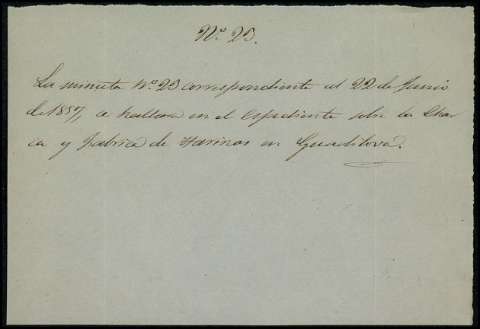 Nº 23.
La minuta nº 23 correspondiente al 22 de Junio
de 1857, se hallará en el Espediente sobre la
y fabrica de Harinas en